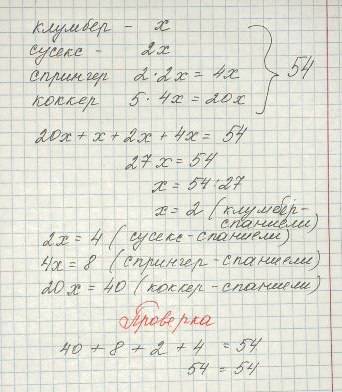 клумбер - x
сусекс - 2x
спрингер 2·2x = 4x
коккер 5·4x = 20x
54
20x + x + 2x + 4x = 54
27x = 54
x = 54:27
x = 2 (клумбер-
спаниели)
2x = 4 (сусекс-спаниели)
4x = 8 (спрингер-спаниели)
20x = 40 (коккер-спаниели)
Проверка
40 + 8 + 2 + 4 = 54
54 = 54